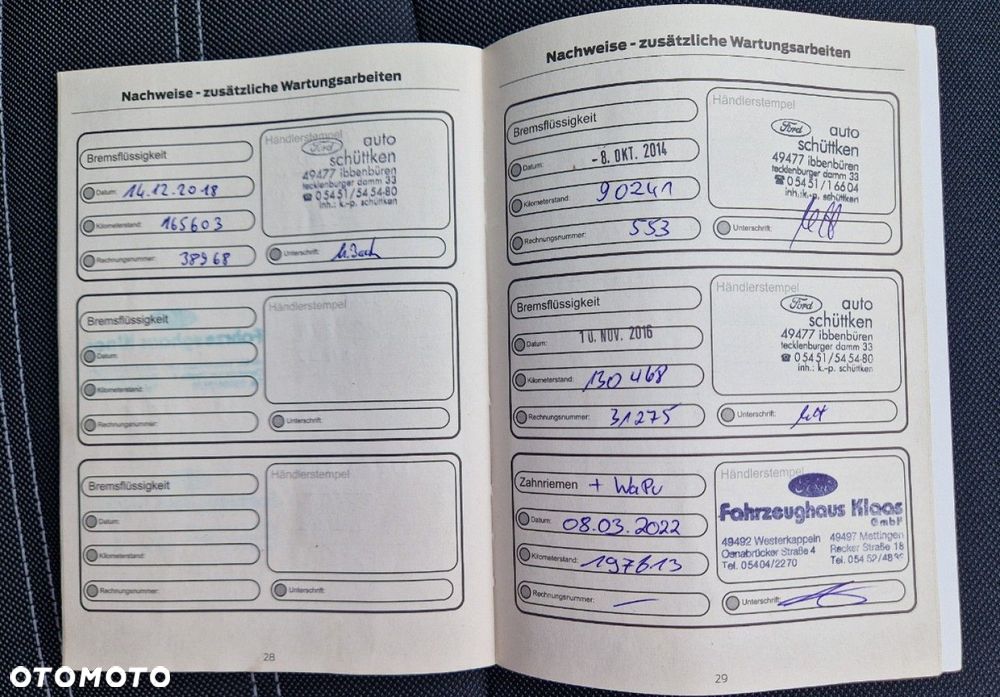 Nachweise - zusätzliche Wartungsarbeiten
Bremsflüssigkeit
Datum: 14.12.2018
Kilometerstand: 165603
Rechnungsnummer: 38968
Händlerstempel
Ford auto
schüttken
49477 ibbenbüren
tecklenburger damm 33
☎ 05451/5454-80
inh.: k.-p. schüttken
Unterschrift:
Bremsflüssigkeit
Datum:
Kilometerstand:
Rechnungsnummer:
Händlerstempel
Unterschrift:
Bremsflüssigkeit
Datum:
Kilometerstand:
Rechnungsnummer:
Händlerstempel
Unterschrift:
28
Nachweise - zusätzliche Wartungsarbeiten
Bremsflüssigkeit
Datum: -8. OKT. 2014
Kilometerstand: 90241
Rechnungsnummer: 553
Händlerstempel
Ford auto
schüttken
49477 ibbenbüren
tecklenburger damm 33
☎ 05451/16604
inh.: k.-p. schüttken
Unterschrift:
Bremsflüssigkeit
Datum: 10. NOV. 2016
Kilometerstand: 130468
Rechnungsnummer: 31275
Händlerstempel
Ford auto
schüttken
49477 ibbenbüren
tecklenburger damm 33
☎ 05451/5454-80
inh.: k.-p. schüttken
Unterschrift:
Zahnriemen + WaPu
Datum: 08.03.2022
Kilometerstand: 197613
Rechnungsnummer: —
Händlerstempel
Ford
Fahrzeughaus Klaas
GmbH
49492 Westerkappeln 49497 Mettingen
Osnabrücker Straße 4 Recker Straße 18
Tel. 05404/2270 Tel. 05452/
Unterschrift:
29
OTOMOTO